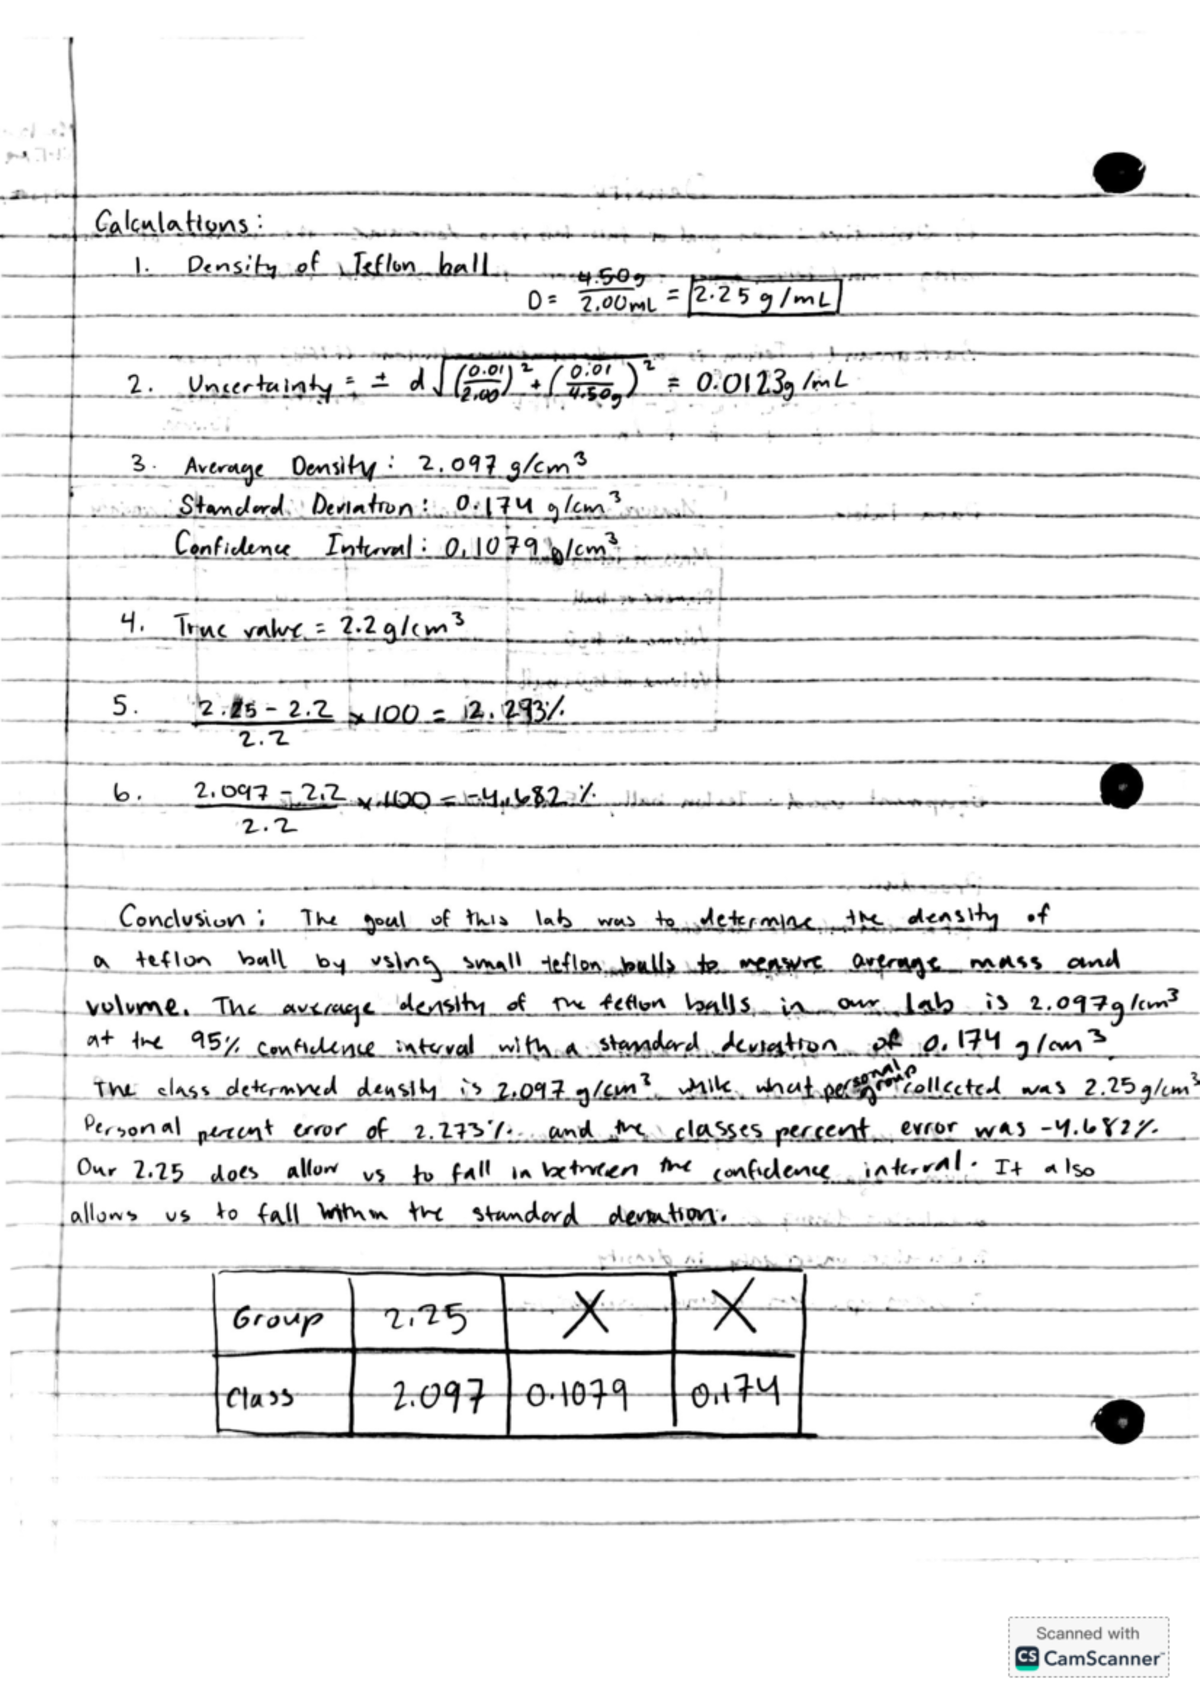 Calculations:
1. Density of Teflon ball
D = 4.50g / 2.00mL = 2.25 g/mL
2. Uncertainty = ± d√((0.01/2.00)² + (0.01/4.50g)²) = 0.0123g/mL
3. Average Density: 2.097 g/cm³
Standard Deviation: 0.174 g/cm³
Confidence Interval: 0.1079 g/cm³
4. True value = 2.2 g/cm³
5. 2.25 - 2.2 / 2.2 × 100 = 2.293%
6. 2.097 - 2.2 / 2.2 × 100 = -4.682%
Conclusion: The goal of this lab was to determine the density of
a teflon ball by using small teflon balls to measure average mass and
volume. The average density of the teflon balls in our lab is 2.097g/cm³
at the 95% confidence interval with a standard deviation of 0.174 g/cm³.
The class determined density is 2.097 g/cm³ while what personal group collected was 2.25g/cm³
Personal percent error of 2.273% and the classes percent error was -4.682%.
Our 2.25 does allow us to fall in between the confidence interval. It also
allows us to fall within the standard deviation.
Group 2.25 X X
Class 2.097 0.1079 0.174
Scanned with
CS CamScanner